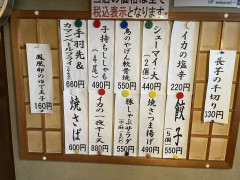 税込表示となります。
長芋の千切り
330円
イカの塩辛
220円
餃子
(5個)
550円
シューマイ 大
(2個)
440円
焼さつま揚げ
490円
鳥のやげん軟骨焼
550円
豚しゃぶサラダ
880円
子持ちししゃも
(4尾)
490円
イカの一夜干し
880円
手羽先&
カマンベールフライ
660円
焼そば
600円
160円